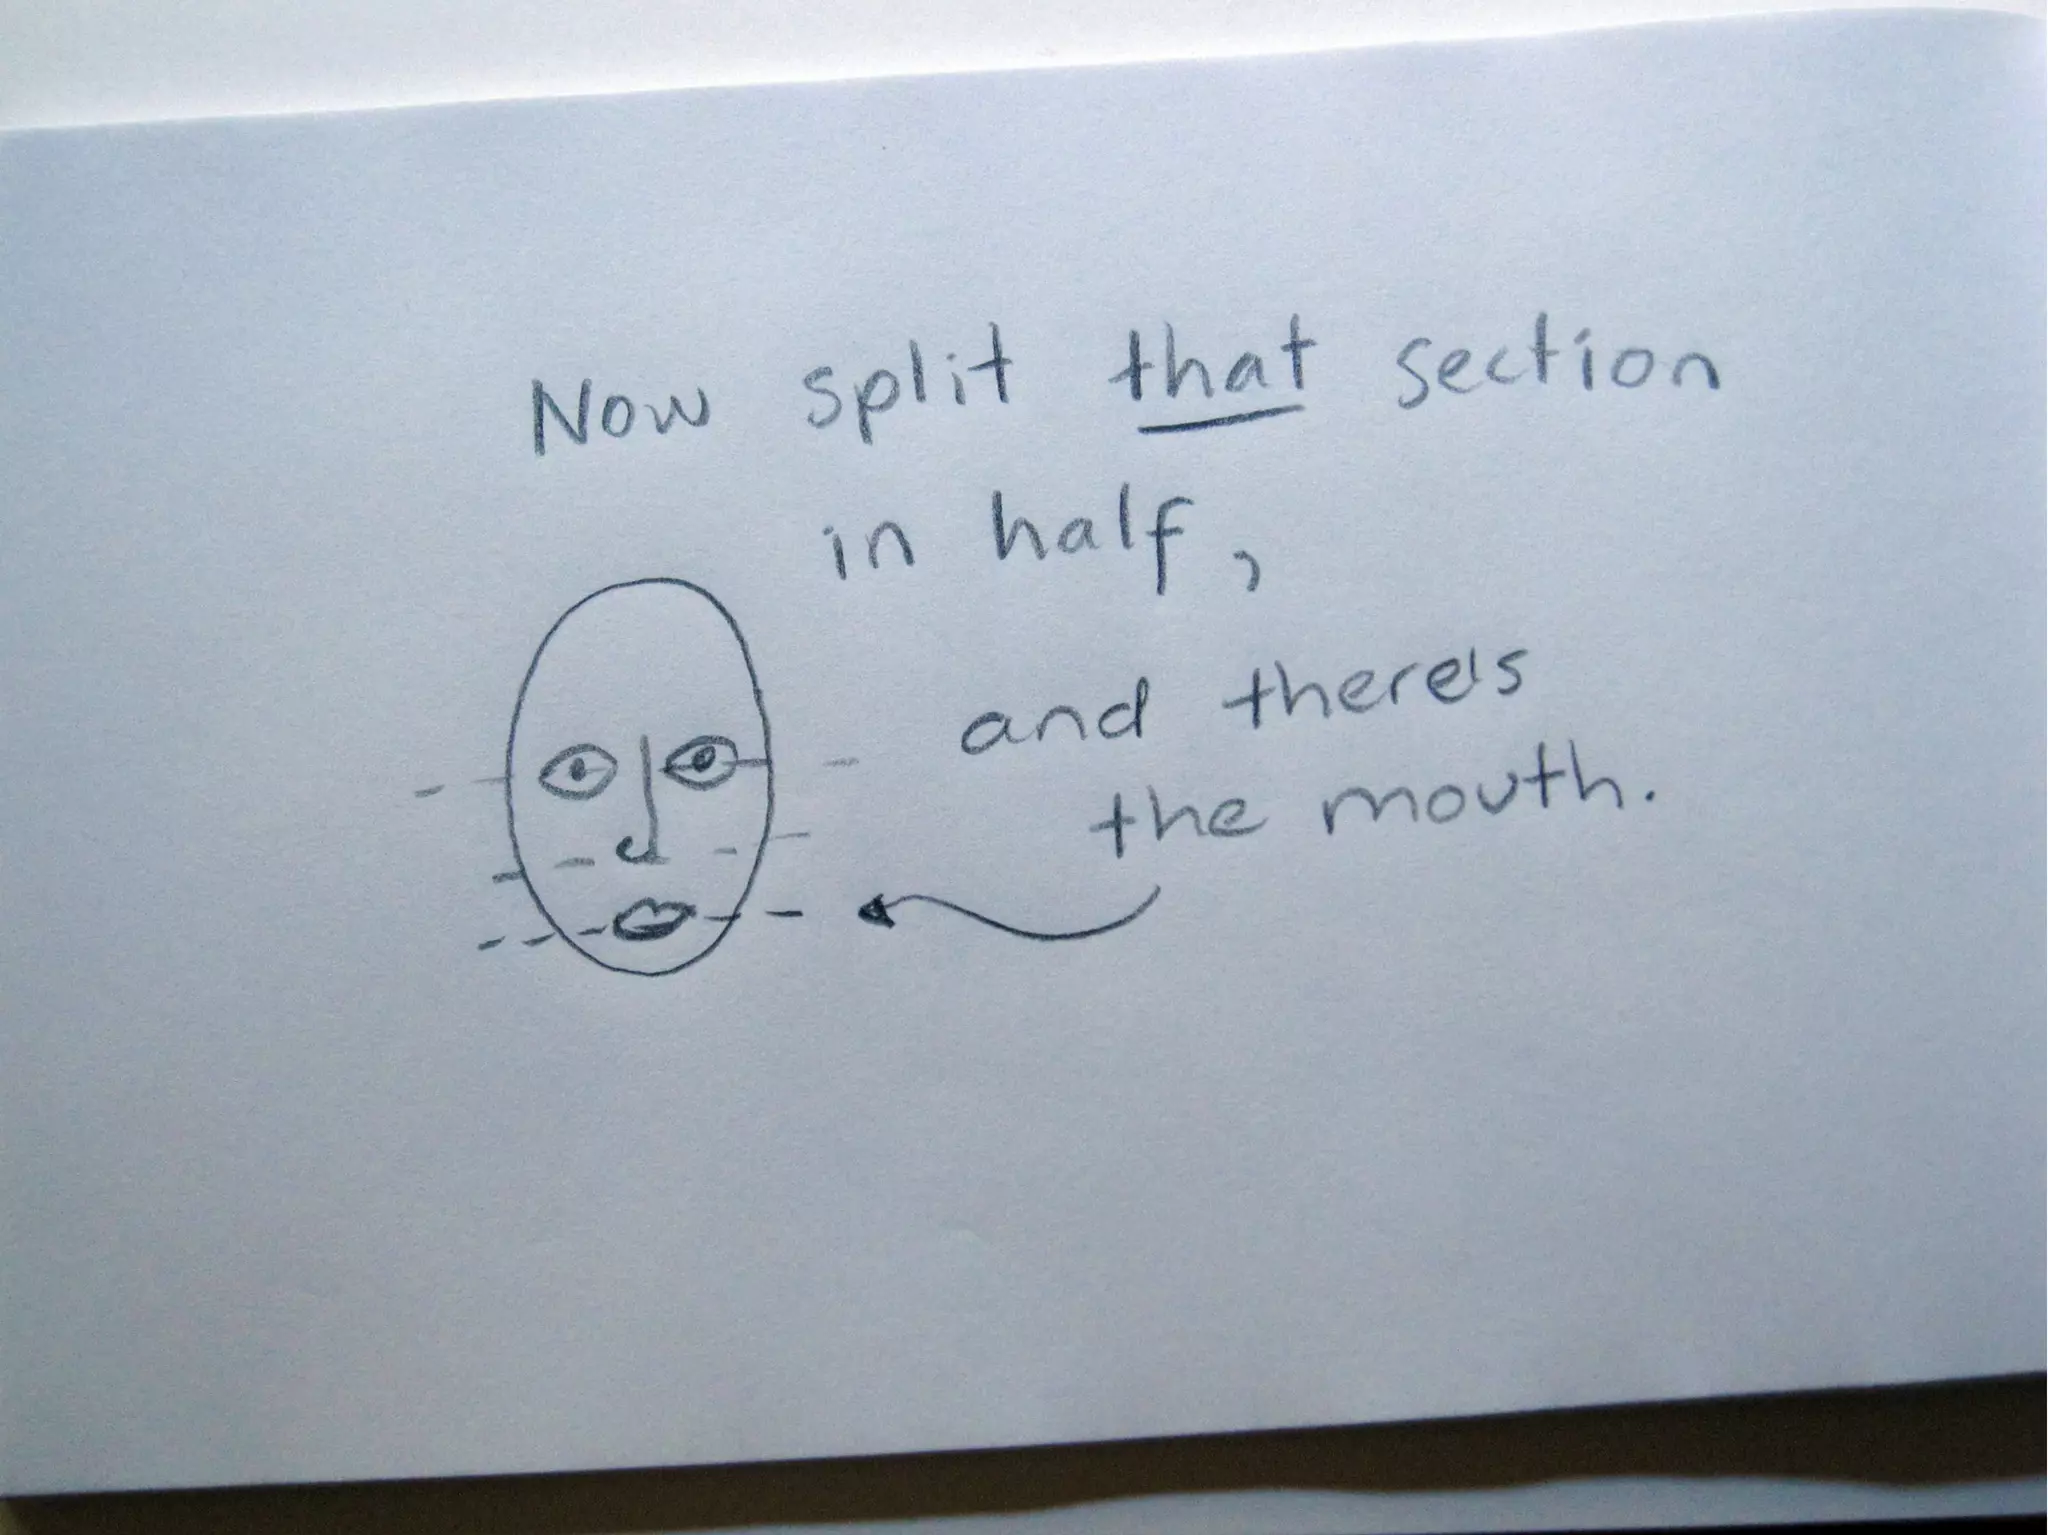 Now split that section
in half,
and there's
the mouth.